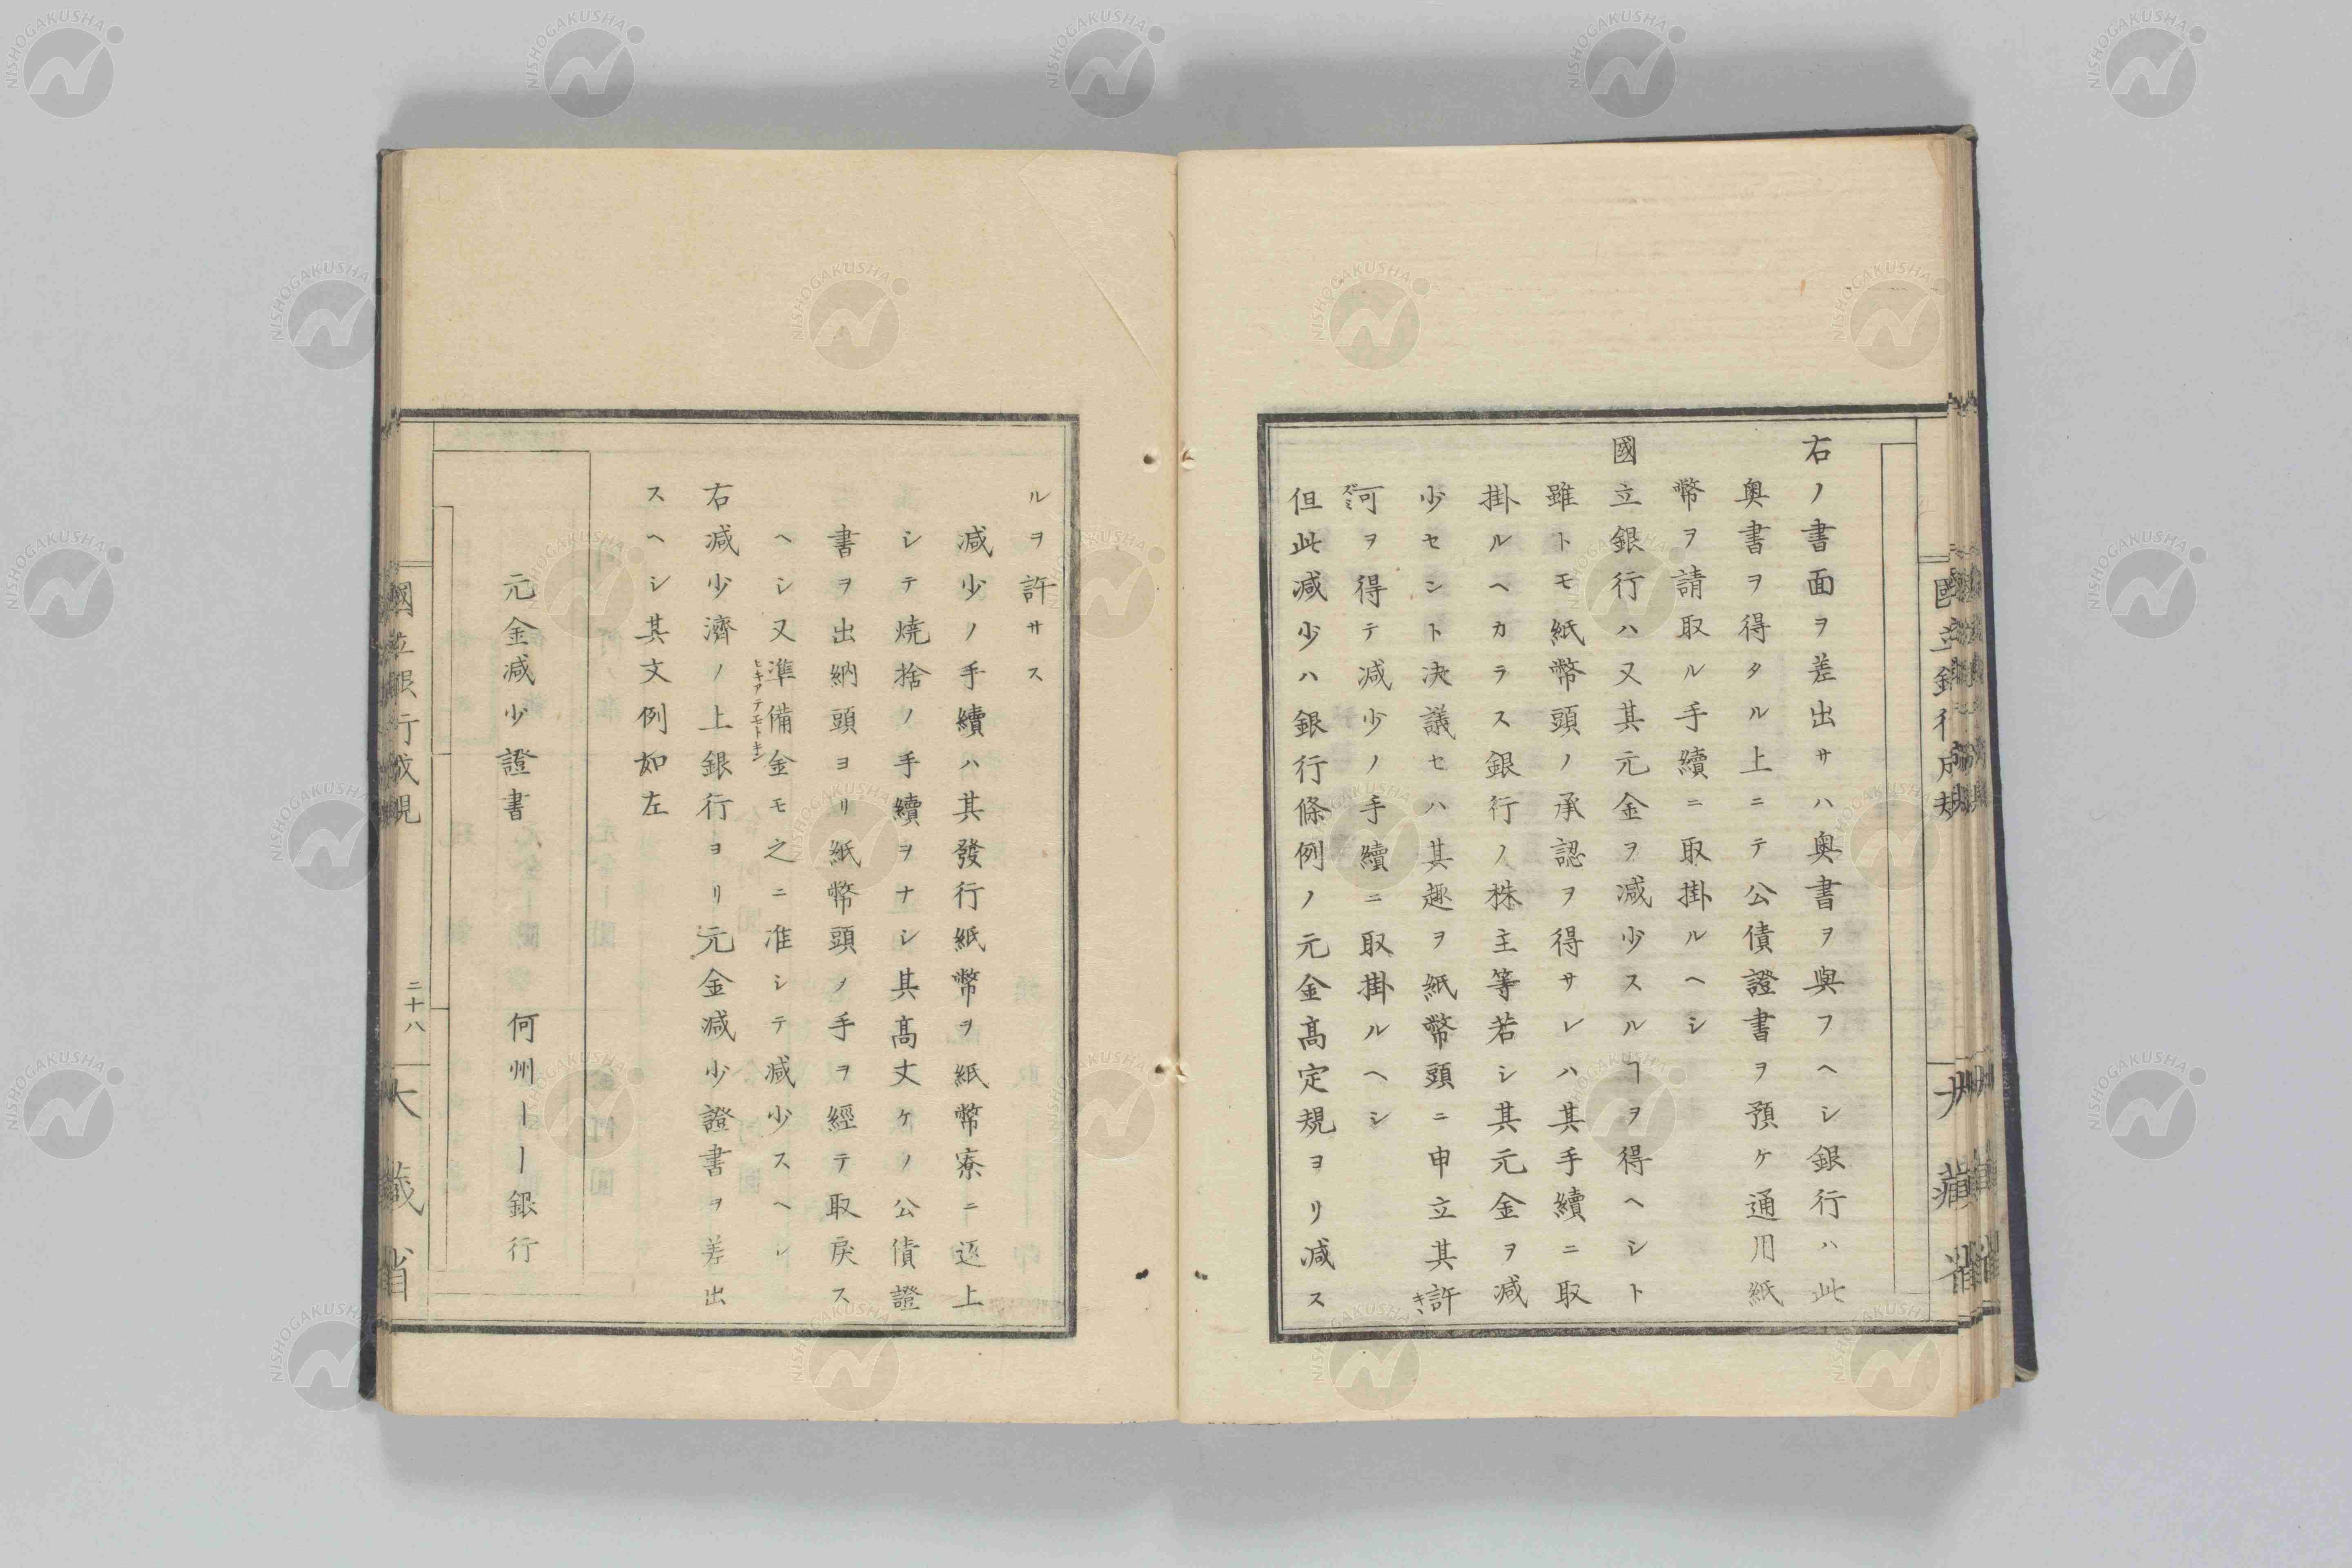 右ノ書面ヲ差出サハ奥書ヲ與フヘシ銀行ハ此
奥書ヲ得タル上ニテ公債證書ヲ預ケ通用紙
幣ヲ請取ル手續ニ取掛ルヘシ
國立銀行ハ又其元金ヲ減少スルヿヲ得ヘシト
雖トモ紙幣頭ノ承認ヲ得サレハ其手續ニ取
掛ルヘカラス銀行ノ株主等若シ其元金ヲ減
少セント決議セハ其趣ヲ紙幣頭ニ申立其許
可ヲ得テ減少ノ手續ニ取掛ルヘシ
但此減少ハ銀行條例ノ元金高定規ヨリ減ス
ルヲ許サス
減少ノ手續ハ其發行紙幣ヲ紙幣寮ニ返上
シテ焼捨ノ手續ヲナシ其高丈ケノ公債證
書ヲ出納頭ヨリ紙幣頭ノ手ヲ經テ取戻ス
ヘシ又準備金モ之ニ准シテ減少スヘシ
ヒキアテモトキン
右減少濟ノ上銀行ヨリ元金減少證書ヲ差出
スヘシ其文例如左
元金減少證書
何州ーーー銀行
國立銀行成規
二十八
大藏省
NISHOGAKUSHA